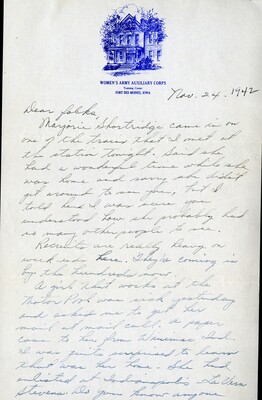 WOMEN'S ARMY AUXILIARY CORPS
Training Center
FORT DES MOINES, IOWA
Nov. 24, 1942
Dear folks,
Marjorie Shortridge came in on
one of the trains that I met at
the station tonight. Said she
had a wonderful time while she
was home and sorry she didn't
get around to see you, but I
told her I was sure you
understood how she probably had
so many other people to see.
Recruits are really heavy on
week ends here. They're coming in
by the hundreds now.
A girl that works at the
Motor Pool was sick yesterday
and asked me to get her
mail at mail call. A paper
came to her from Ind.
I was quite surprised to learn
that was her home. She had
enlisted at Indianapolis
Stevens. Do you know anyone